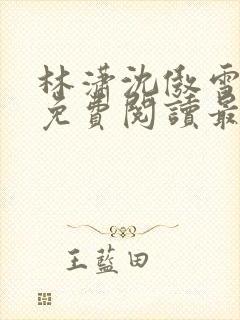 林瀟沈傲雪
免費閱讀最
王藍田